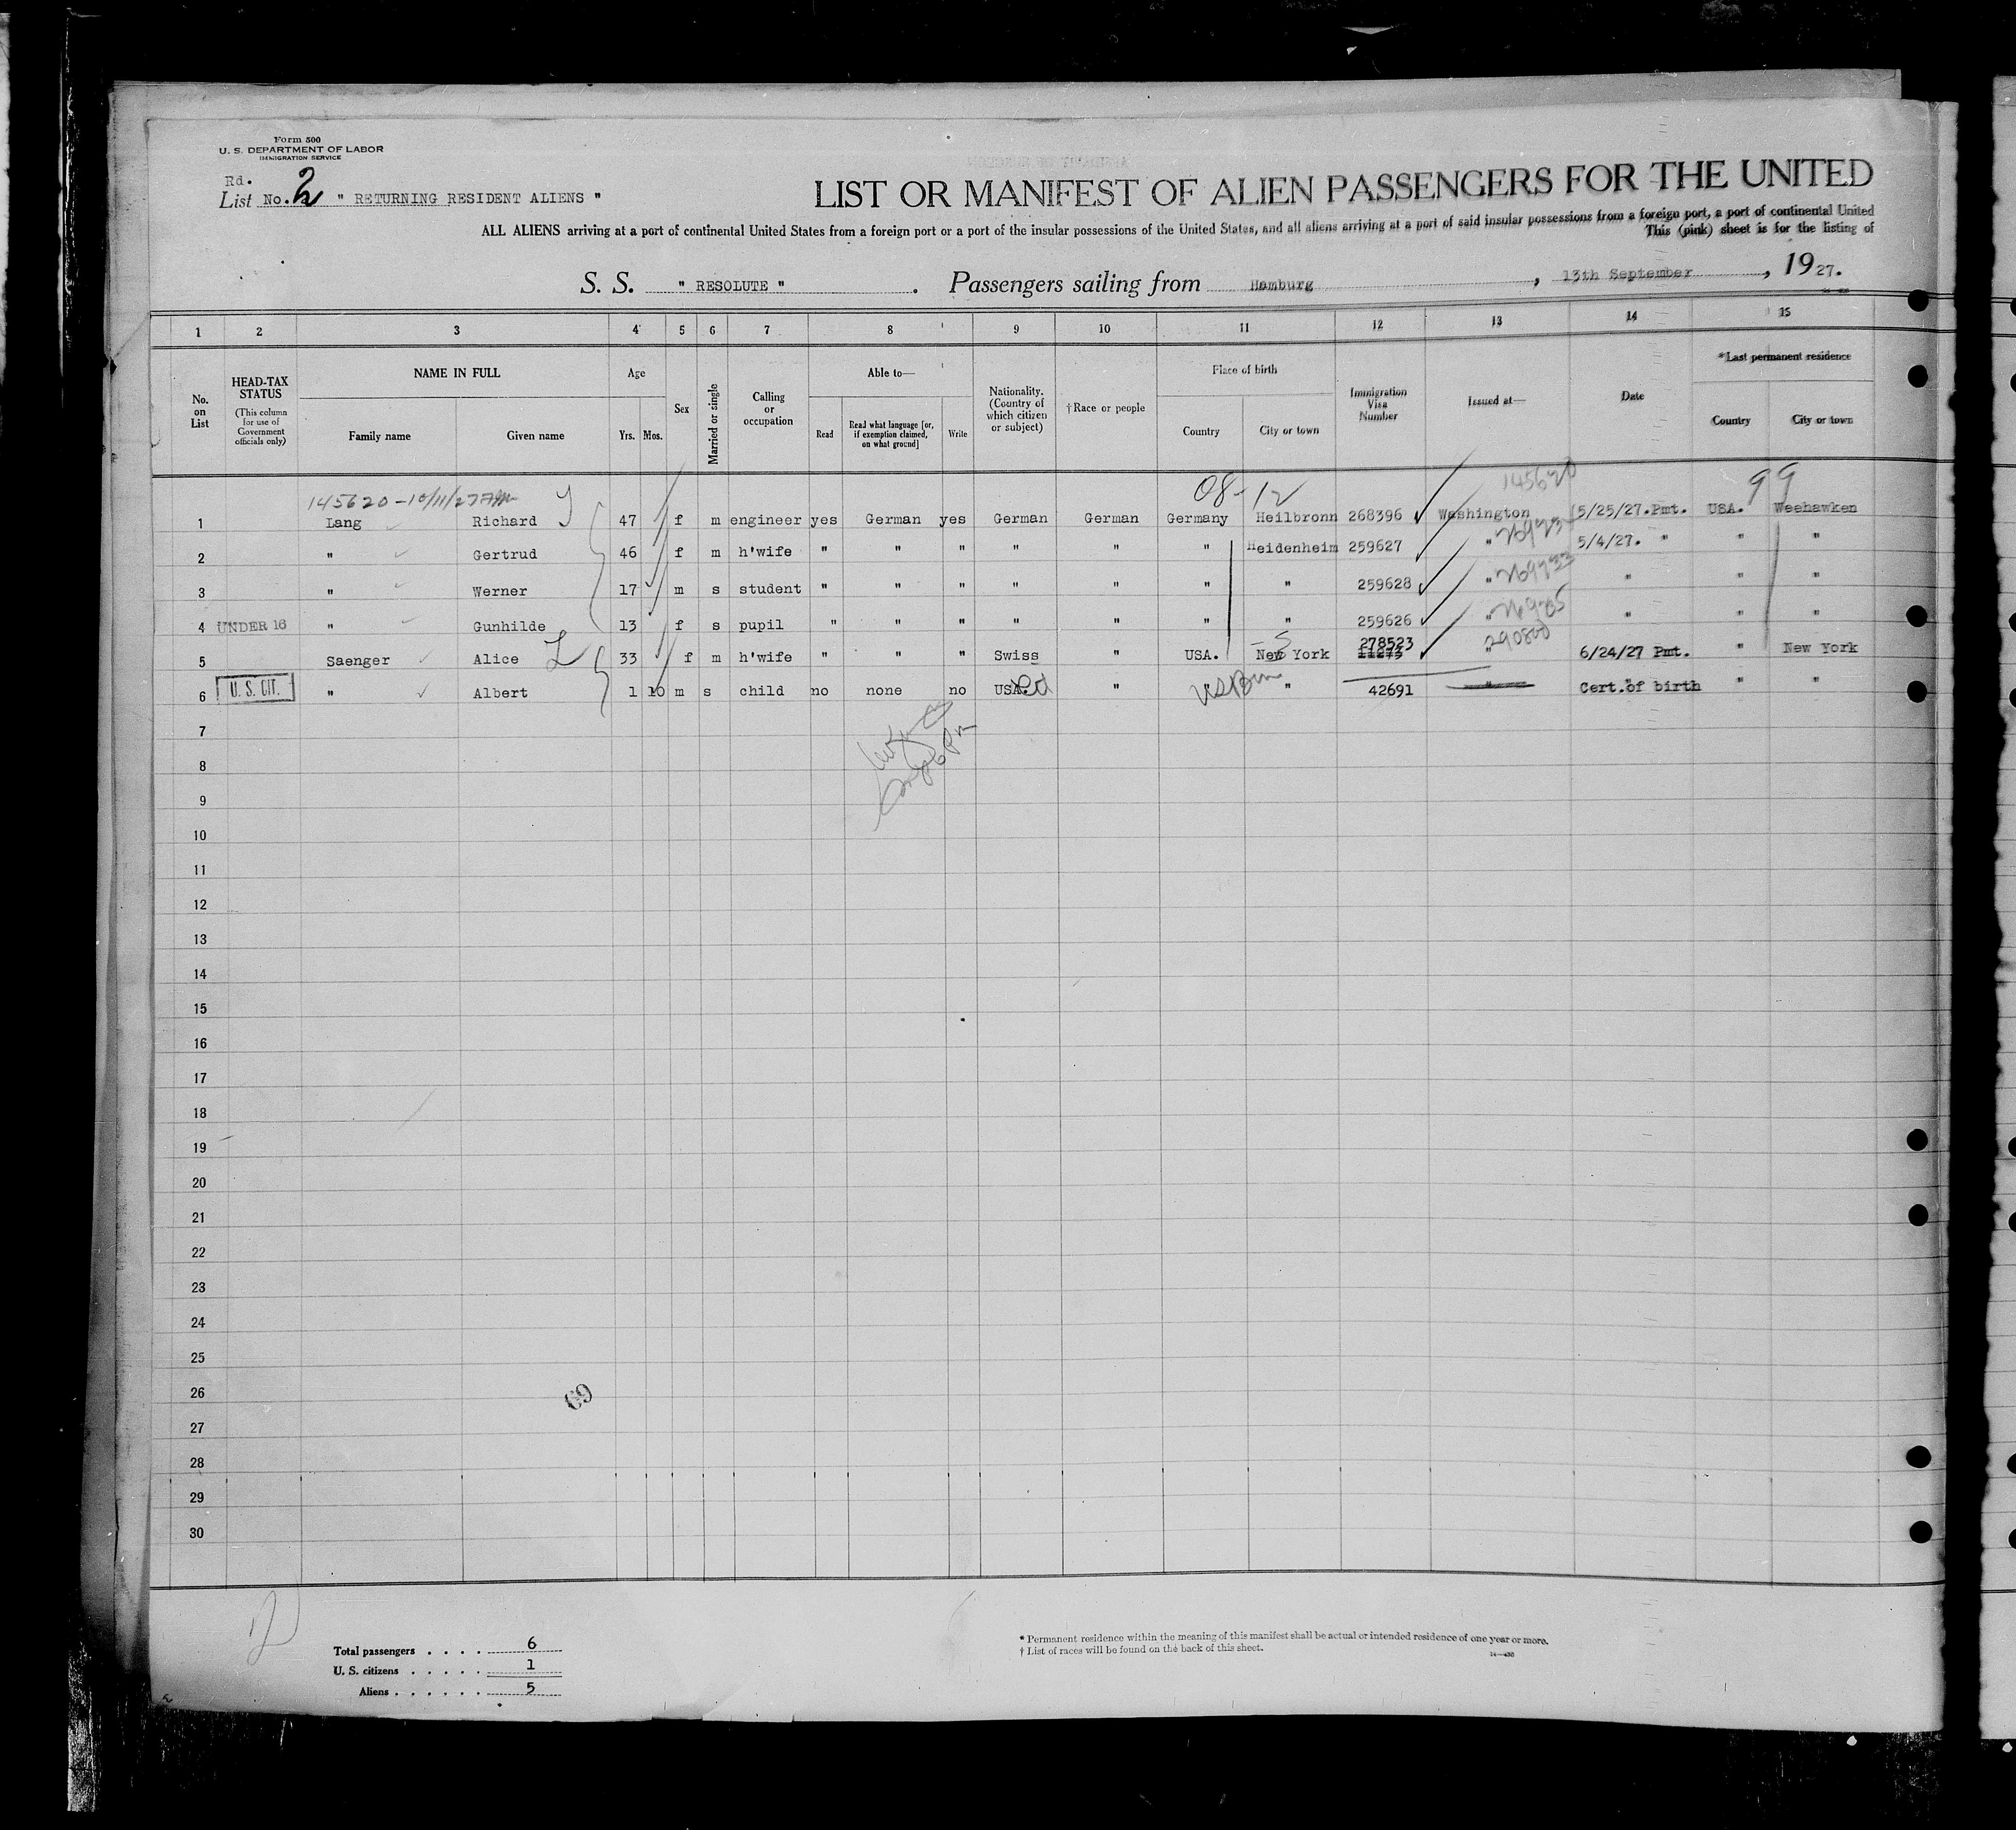 Form 500
U. S. DEPARTMENT OF LABOR
IMMIGRATION SERVICE
Rd.
List No. 2 " RETURNING RESIDENT ALIENS "
LIST OR MANIFEST OF ALIEN PASSENGERS FOR THE UNITED
ALL ALIENS arriving at a port of continental United States from a foreign port or a port of the insular possessions of the United States, and all aliens arriving at a port of said insular possessions from a foreign port, a port of continental United
This (pink) sheet is for the listing of
S. S. " RESOLUTE " . Passengers sailing from Hamburg , 13th September , 1927.
1 2 3 4 5 6 7 8 9 10 11 12 13 14 15
No. on List
HEAD-TAX STATUS (This column for use of Government officials only)
NAME IN FULL
Family name Given name
Age
Yrs. Mos.
Sex
Married or single
Calling or occupation
Able to—
Read
Read what language [or, if exemption claimed, on what ground]
Write
Nationality. (Country of which citizen or subject)
†Race or people
Place of birth
Country City or town
Immigration Visa Number
Issued at—
Date
*Last permanent residence
Country City or town
145620 - 10/11/27 08-12 145620 99
1 Lang Richard 47 f m engineer yes German yes German German Germany Heilbronn 268396 Washington 5/25/27.Pmt. USA. Weehawken
2 " Gertrud 46 f m h'wife " " " " " " Heidenheim 259627 " 5/4/27. " " "
3 " Werner 17 m s student " " " " " " " 259628 " " " "
4 UNDER 16 " Gunhilde 13 f s pupil " " " " " " " 259626 " " " "
278523 290800
5 Saenger Alice 33 f m h'wife " " " Swiss " USA. New York 11273 " 6/24/27 Pmt. " New York
6 U. S. CIT. " Albert 1 10 m s child no none no USA. " " " 42691 " Cert.of birth " "
7
8
9
10
11
12
13
14
15
16
17
18
19
20
21
22
23
24
25
26
27
28
29
30
69
Total passengers . . . . 6
U. S. citizens . . . . . 1
Aliens . . . . . . 5
* Permanent residence within the meaning of this manifest shall be actual or intended residence of one year or more.
† List of races will be found on the back of this sheet.